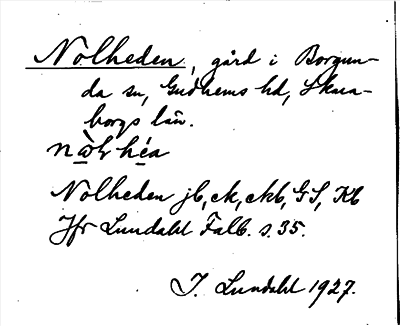 Nolheden, gård i Borgun-
da sn, Gudhems hd, Skara-
borgs län.
Nolheden jb, ek, ekb, GS, Kb
Jfr Lundahl Falb. s. 35.
I. Lundahl 1927.